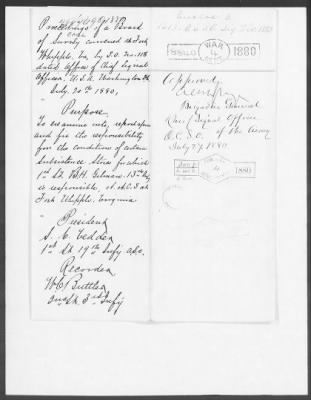 Proceedings of a Board
of Survey convened at Fort
Whipple, Va. by S.O. No. 118
dated Office of Chief Signal
Officer, U.S.A. Washington D.C.
July 20th 1880,
Purpose
To examine into, report upon
and fix the responsibility
for the condition of certain
Subsistence Stores for which
1st Lt. B.H. Gilman. 13th Inf
is responsible, at A.C.S. at
Fort Whipple, Virginia
President
S. C. Vedder
1st Lt 19th Infy a.s.o.
Recorder
W.C. Buttler
2nd Lt. 3rd Infy
MAR
4
1880
Approved
Brigadier General
Chief Signal Officer
O.C.S.O. of the Army
July 27, 80
4
1880